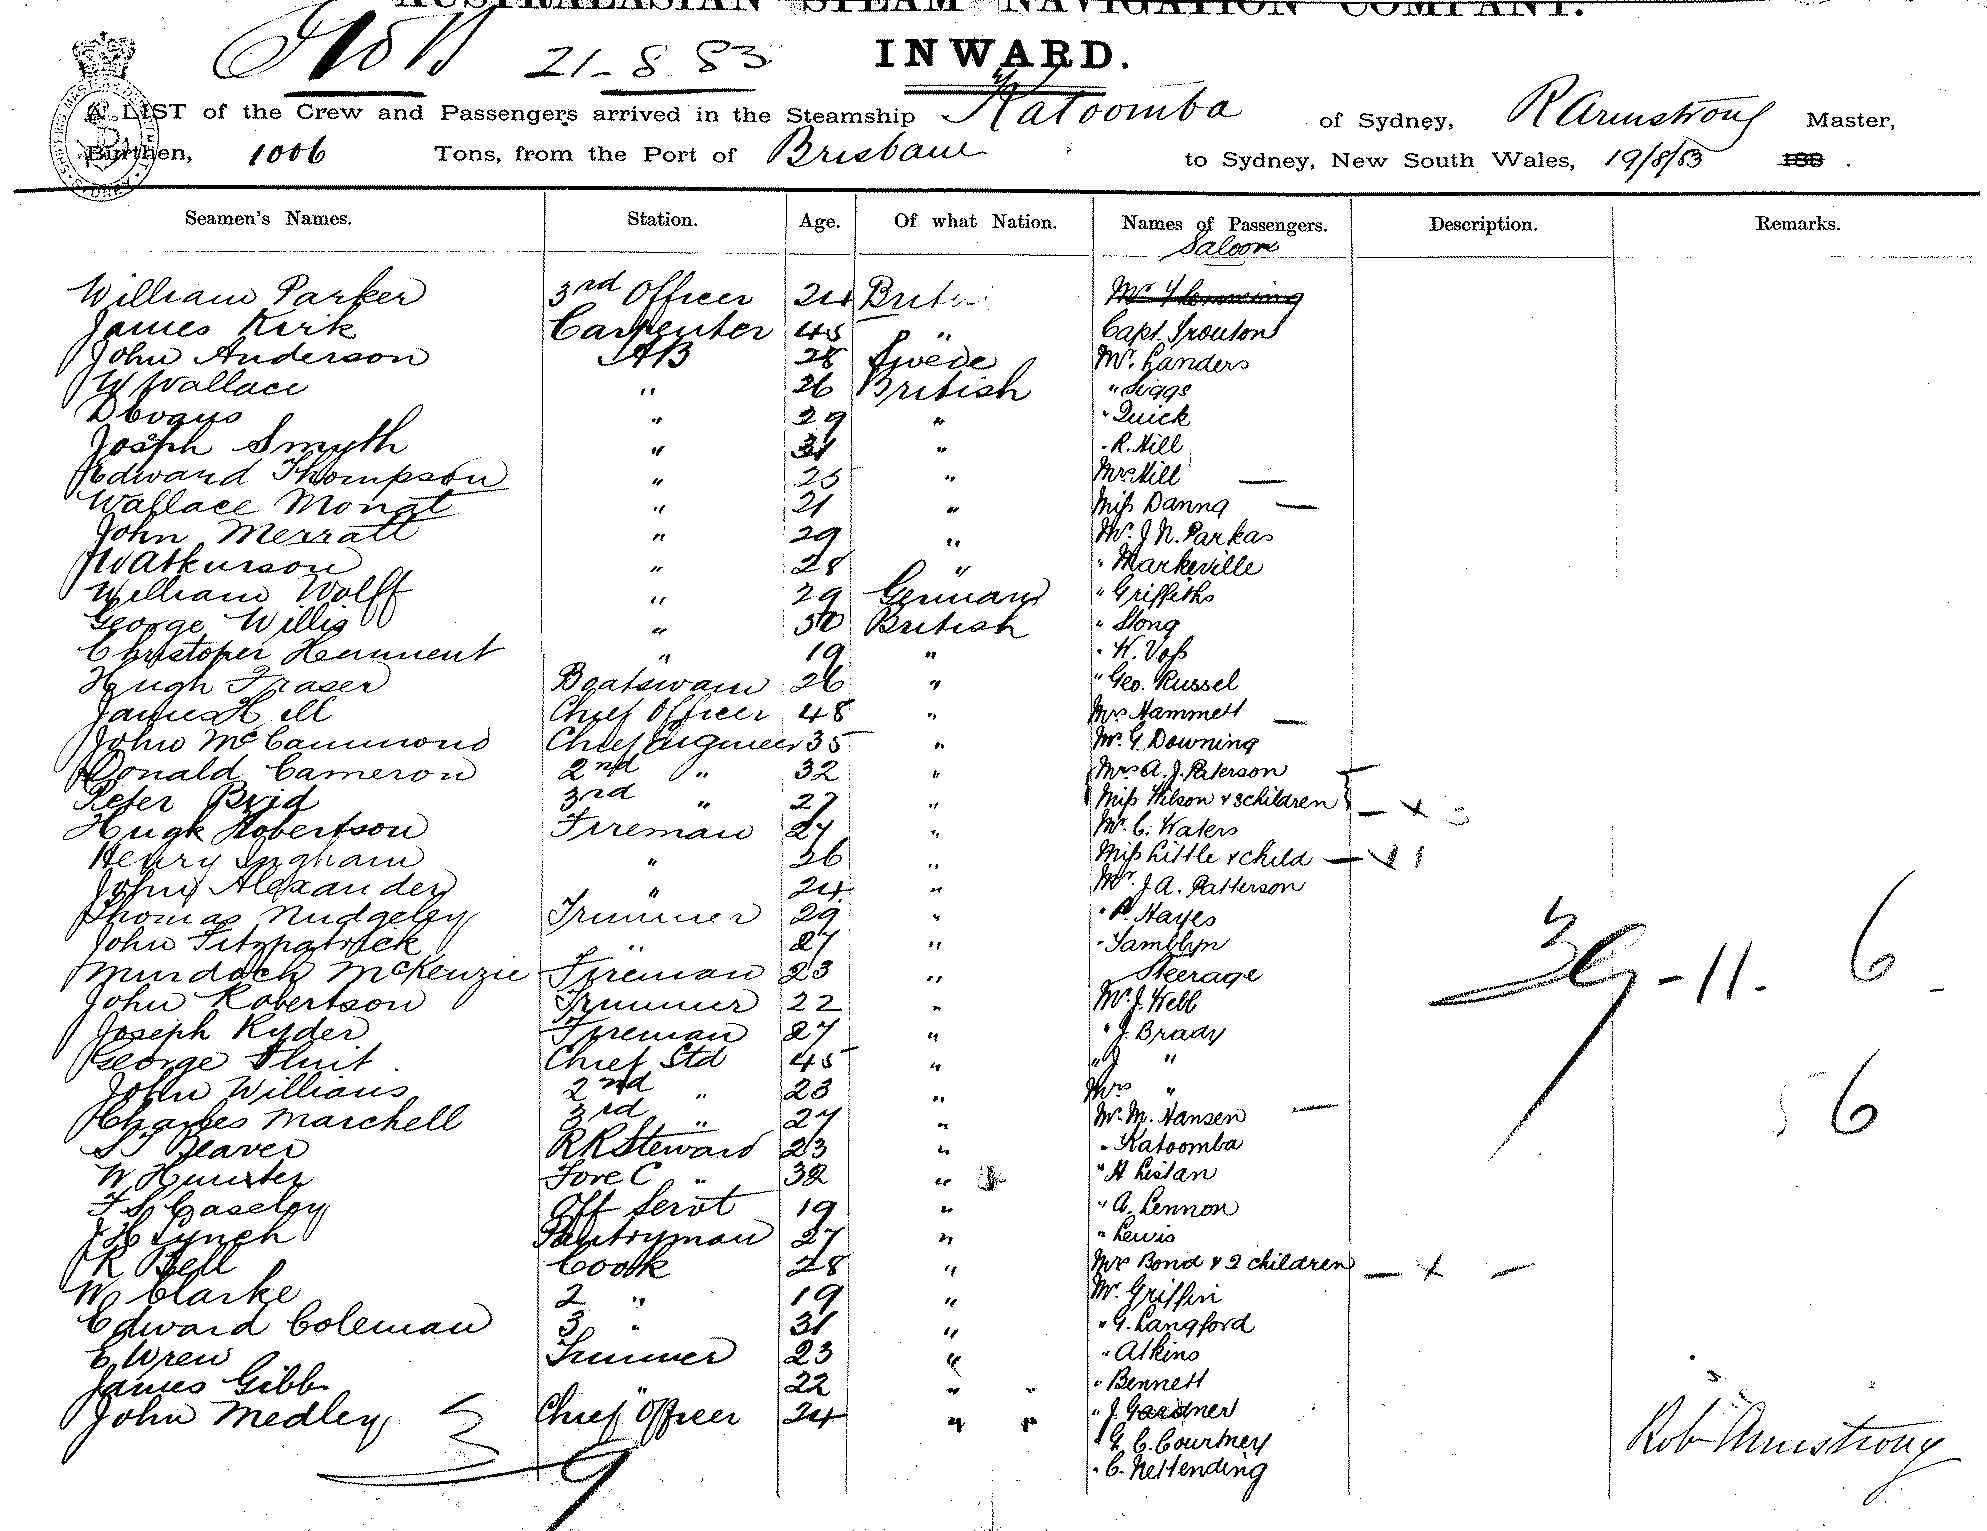 AUSTRALASIAN STEAM NAVIGATION COMPANY.
21-8 83
INWARD.
A LIST of the Crew and Passengers arrived in the Steamship Katoomba of Sydney, R Armstrong Master,
Burthen, 1006 Tons, from the Port of Brisbane to Sydney, New South Wales, 19/8/83 188 .
Seamen's Names. Station. Age. Of what Nation. Names of Passengers. Description. Remarks.
Saloon
William Parker 3rd Officer 24 Mr
James Kirk Carpenter 45 " Capt Trouton
John Anderson AB 28 Swede Mr. Landers
W Wallace " 26 British "
" 29 " " Quick
Josph Smyth " 31 " - R. Hill
Edward Thompson " 25 " Mrs Hill —
Wallace Monat " 21 " Miss Danna —
John Merratt " 29 " Mr. J N. Parkas
" 28 " " Markeville
William Wolff " 29 German " Griffiths
George Willis " 30 British " Stong
Christoper Hemment " 19 " " W. Voss
Hugh Fraser Boatswain 26 " " Geo. Russel
James Hill Chief Officer 48 " Mrs Hammett —
John McCammond Chief Engineer 35 " Mr. G. Downing
Donald Cameron 2nd " 32 " Mrs A. J. Paterson —
Peter 3rd " 27 " Miss Wilson & 3 children — + 3
Hugh Robertson Fireman 27 " Mr. C. Waters
Henry Ingham " 26 " Miss Little & child — 1
John Alexander " 24 " Mr. J A. Patterson
Thomas Nudgeley Trimmer 29 " " Hayes
John Fitzpatrick " 27 " - Tamblyn
Murdoch McKenzie Fireman 23 " Steerage
John Robertson Trimmer 22 " Mr. J. Webb
Joseph Ryder Fireman 27 " " J. Brady
George Chief Std 45 " " J "
John Williams 2nd " 23 " Mrs "
Charles Marchell 3rd " 27 " Mr. M. Hansen —
Beaver RR Steward 23 " " Katoomba
W Hunter Fore C " 32 " " H Listan
Caseley Off Servt 19 " " A. Lennon
Lynch Pantryman 27 " " Lewis
R Bell Cook 28 " Mrs Bond & 2 children — + —
W Clarke 2 " 19 " Mr. Griffin
Edward Coleman 3 " 31 " " G. Langford
C Wren Trimmer 23 " " Atkins
James Gibb " 22 " " Bennett
John Medley Chief Officer 24 " " " J. Gardner
" G. C. Courtney
" C. Nettending
39
39 - 11. 6
56
Rob Armstrong